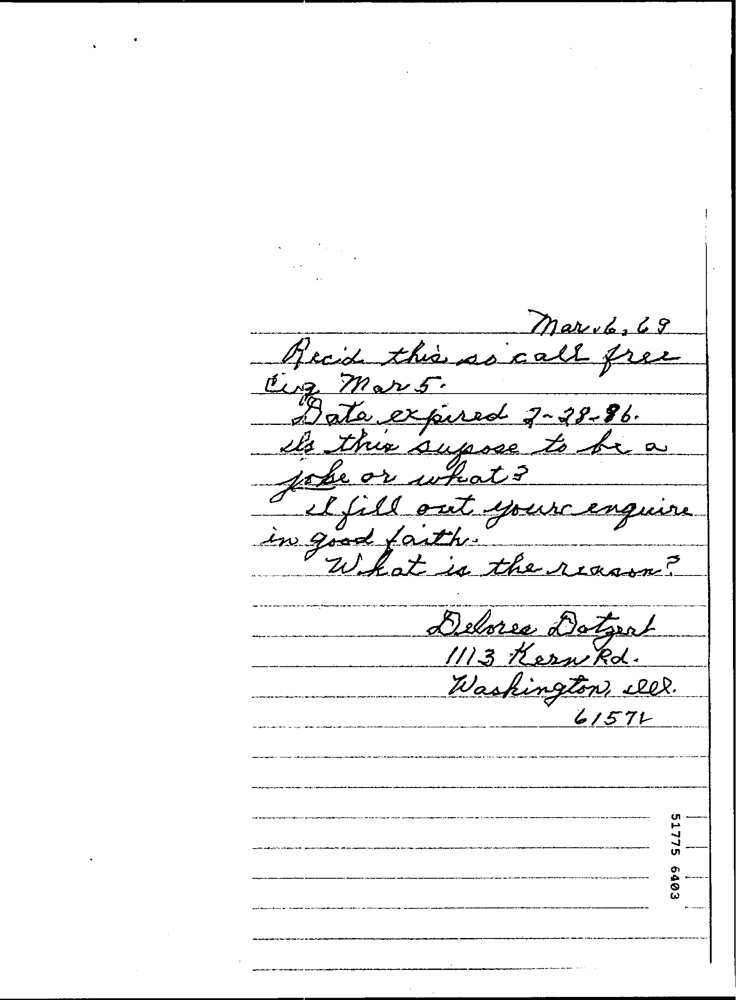 Mar. 6, 69
Recid this so call free
Cig Mar 5.
Data expired 2-28-86.
Is this supose to be a
joke or what?
I fill out your enquire
in good faith.
What is the reason?
Delores Dotzert
1113 Kern Rd.
Washington, Ill.
61571
51775 6403